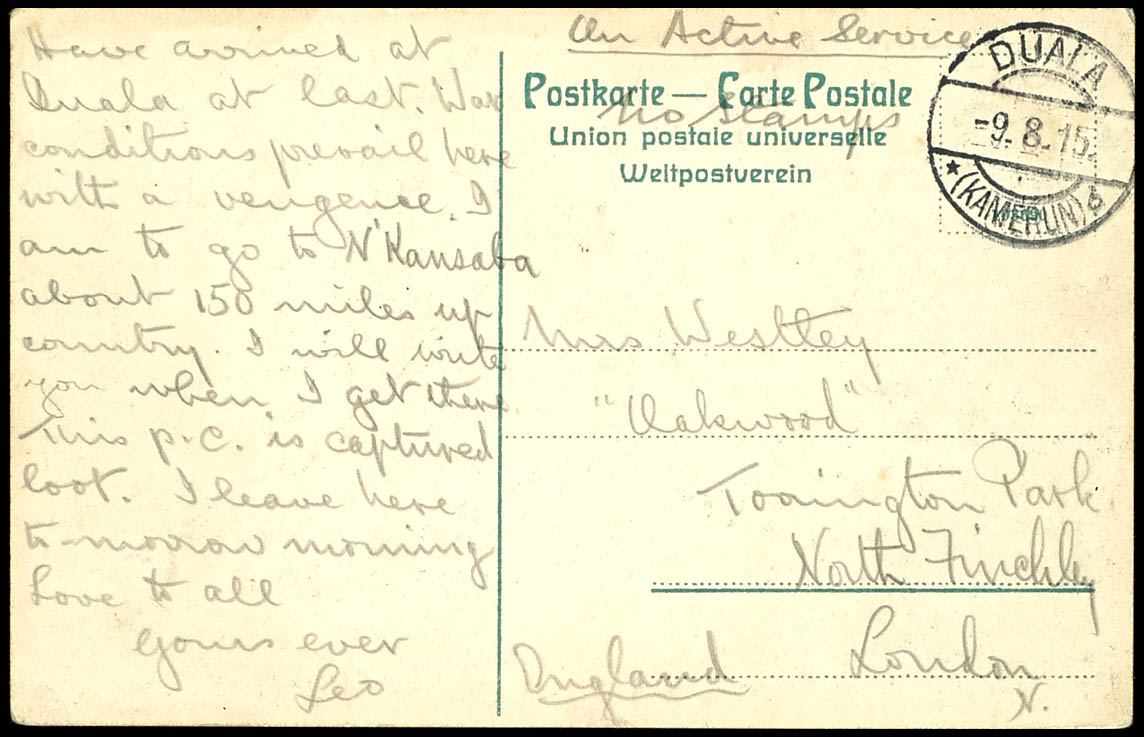 Have arrived at
Duala at last. War
conditions prevail here
with a vengence. I
am to go to N'Kansaba
about 150 miles up
country. I will write
you when I get there.
This p.c. is captured
loot. I leave here
to-morrow morning
Love to all
yours ever
Leo
On Active Service
Postkarte — Carte Postale
No stamps
Union postale universelle
Weltpostverein
DUALA
-9.8.15.
(KAMERUN)
Mrs Westley
"Oakwood"
Torrington Park
North Finchley
London
N.
England